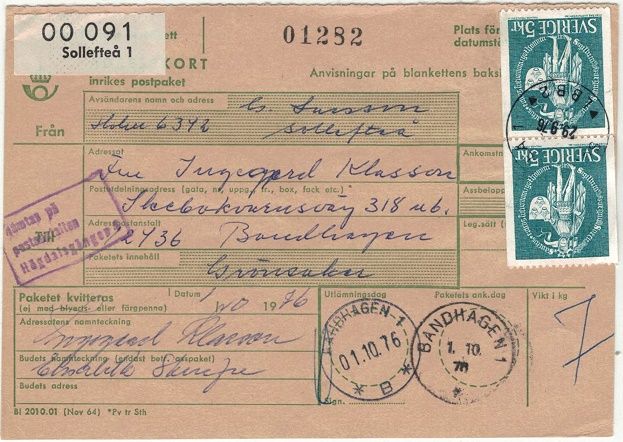 00 091
Sollefteå 1
ett
01282
Plats för
datumstä
KORT
inrikes postpaket
Anvisningar på blankettens baks
Från
Avsändarens namn och adress
G. Larsson
6342
Sollefteå
Till
Adressat
Fru Ingegerd Klasson
Ankomstn
Postutdelningsadress (gata, nr, uppg., tr., box, fack etc.)*
Skebokvarnsväg 318 nb.
Assbelopp
Adresspostanstalt
12436 Bandhagen
Leg.(sätt)
Paketets innehåll
Grönsaker
Hämtas på
postanstalten
Högdalsgången
Paketet kvitteras
(ej med blyerts eller färgpenna)
Datum
1/10 1976
Utlämningsdag
Paketets ank.dag
Vikt i kg
7
Adressatens namnteckning
Ingegerd Klasson
Budets namnteckning (endast bef. assipaket)
Budets adress
Sign.
BANDHAGEN 1
01.10.76
B
BANDHAGEN 1
1. 10.
76
BI 2010.01 (Nov 64) *Pv tr Sth
SVERIGE 5kr
29.9.76
SVERIGE 5kr